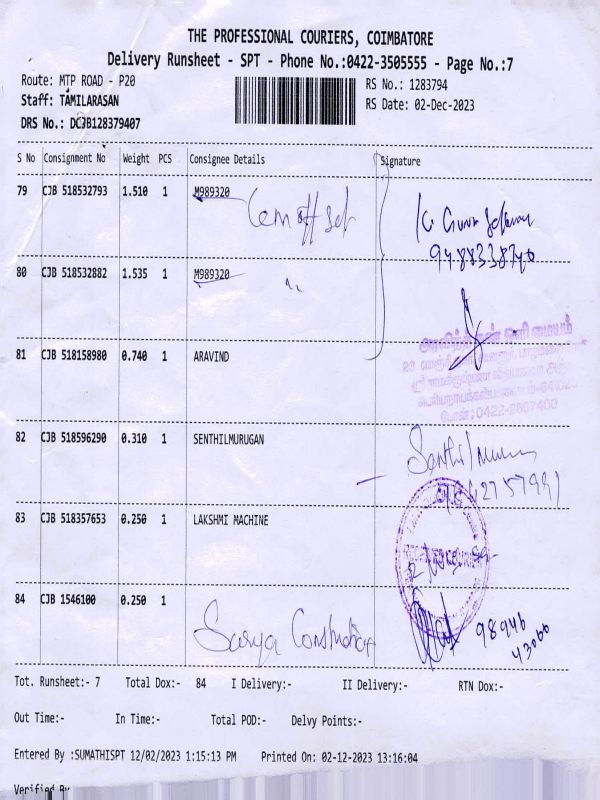 THE PROFESSIONAL COURIERS, COIMBATORE
Delivery Runsheet - SPT - Phone No.:0422-3505555 - Page No.:7
Route: MTP ROAD - P20 RS No.: 1283794
Staff: TAMILARASAN RS Date: 02-Dec-2023
DRS No.: DCJB128379407
S No Consignment No Weight PCS Consignee Details Signature
79 CJB 518532793 1.510 1 M989320
80 CJB 518532882 1.535 1 M989320
81 CJB 518158980 0.740 1 ARAVIND
82 CJB 518596290 0.310 1 SENTHILMURUGAN
83 CJB 518357653 0.250 1 LAKSHMI MACHINE
84 CJB 1546100 0.250 1
Surya
98946
43066
Tot. Runsheet:- 7 Total Dox:- 84 I Delivery:- II Delivery:- RTN Dox:-
Out Time:- In Time:- Total POD:- Delvy Points:-
Entered By :SUMATHISPT 12/02/2023 1:15:13 PM Printed On: 02-12-2023 13:16:04
Verified By